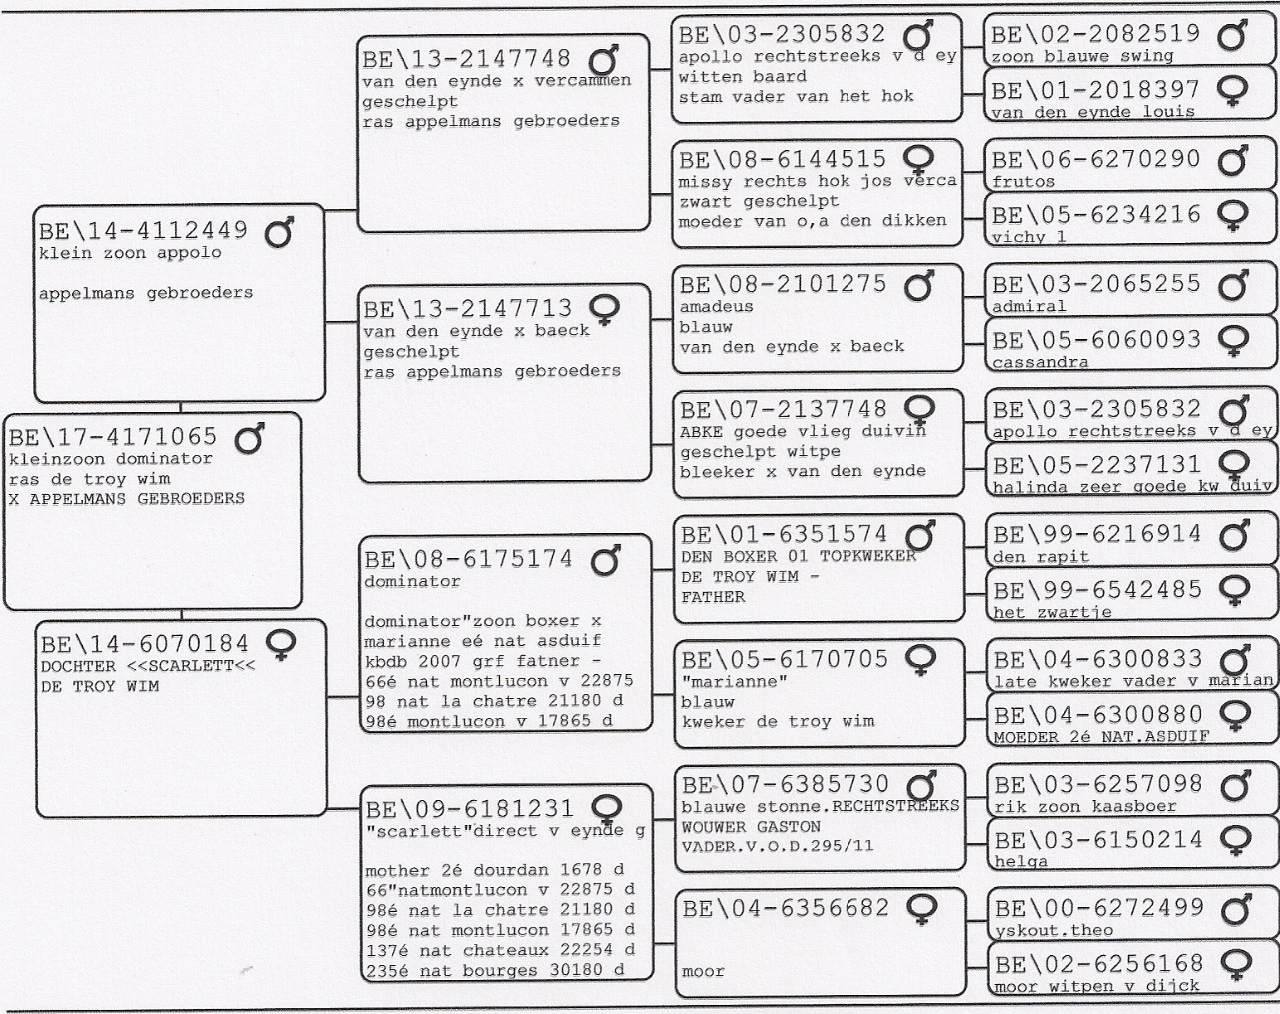 BE\17-4171065
kleinzoon dominator
ras de troy wim
X APPELMANS GEBROEDERS
BE\14-4112449
klein zoon appolo
appelmans gebroeders
BE\14-6070184
DOCHTER <<SCARLETT<<
DE TROY WIM
BE\13-2147748
van den eynde x vercammen
geschelpt
ras appelmans gebroeders
BE\13-2147713
van den eynde x baeck
geschelpt
ras appelmans gebroeders
BE\08-6175174
dominator
dominator"zoon boxer x
marianne eé nat asduif
kbdb 2007 grf fatner -
66é nat montlucon v 22875
98 nat la chatre 21180 d
98é montlucon v 17865 d
BE\09-6181231
"scarlett"direct v eynde g
mother 2é dourdan 1678 d
66"natmontlucon v 22875 d
98é nat la chatre 21180 d
98é nat montlucon 17865 d
137é nat chateaux 22254 d
235é nat bourges 30180 d
BE\03-2305832
apollo rechtstreeks v d ey
witten baard
stam vader van het hok
BE\08-6144515
missy rechts hok jos verca
zwart geschelpt
moeder van o,a den dikken
BE\08-2101275
amadeus
blauw
van den eynde x baeck
BE\07-2137748
ABKE goede vlieg duivin
geschelpt witpe
bleeker x van den eynde
BE\01-6351574
DEN BOXER 01 TOPKWEKER
DE TROY WIM -
FATHER
BE\05-6170705
"marianne"
blauw
kweker de troy wim
BE\07-6385730
blauwe stonne.RECHTSTREEKS
WOUWER GASTON
VADER.V.O.D.295/11
BE\04-6356682
moor
BE\02-2082519
zoon blauwe swing
BE\01-2018397
van den eynde louis
BE\06-6270290
frutos
BE\05-6234216
vichy 1
BE\03-2065255
admiral
BE\05-6060093
cassandra
BE\03-2305832
apollo rechtstreeks v d ey
BE\05-2237131
halinda zeer goede kw duiv
BE\99-6216914
den rapit
BE\99-6542485
het zwartje
BE\04-6300833
late kweker vader v marian
BE\04-6300880
MOEDER 2é NAT.ASDUIF
BE\03-6257098
rik zoon kaasboer
BE\03-6150214
helga
BE\00-6272499
yskout.theo
BE\02-6256168
moor witpen v dijck